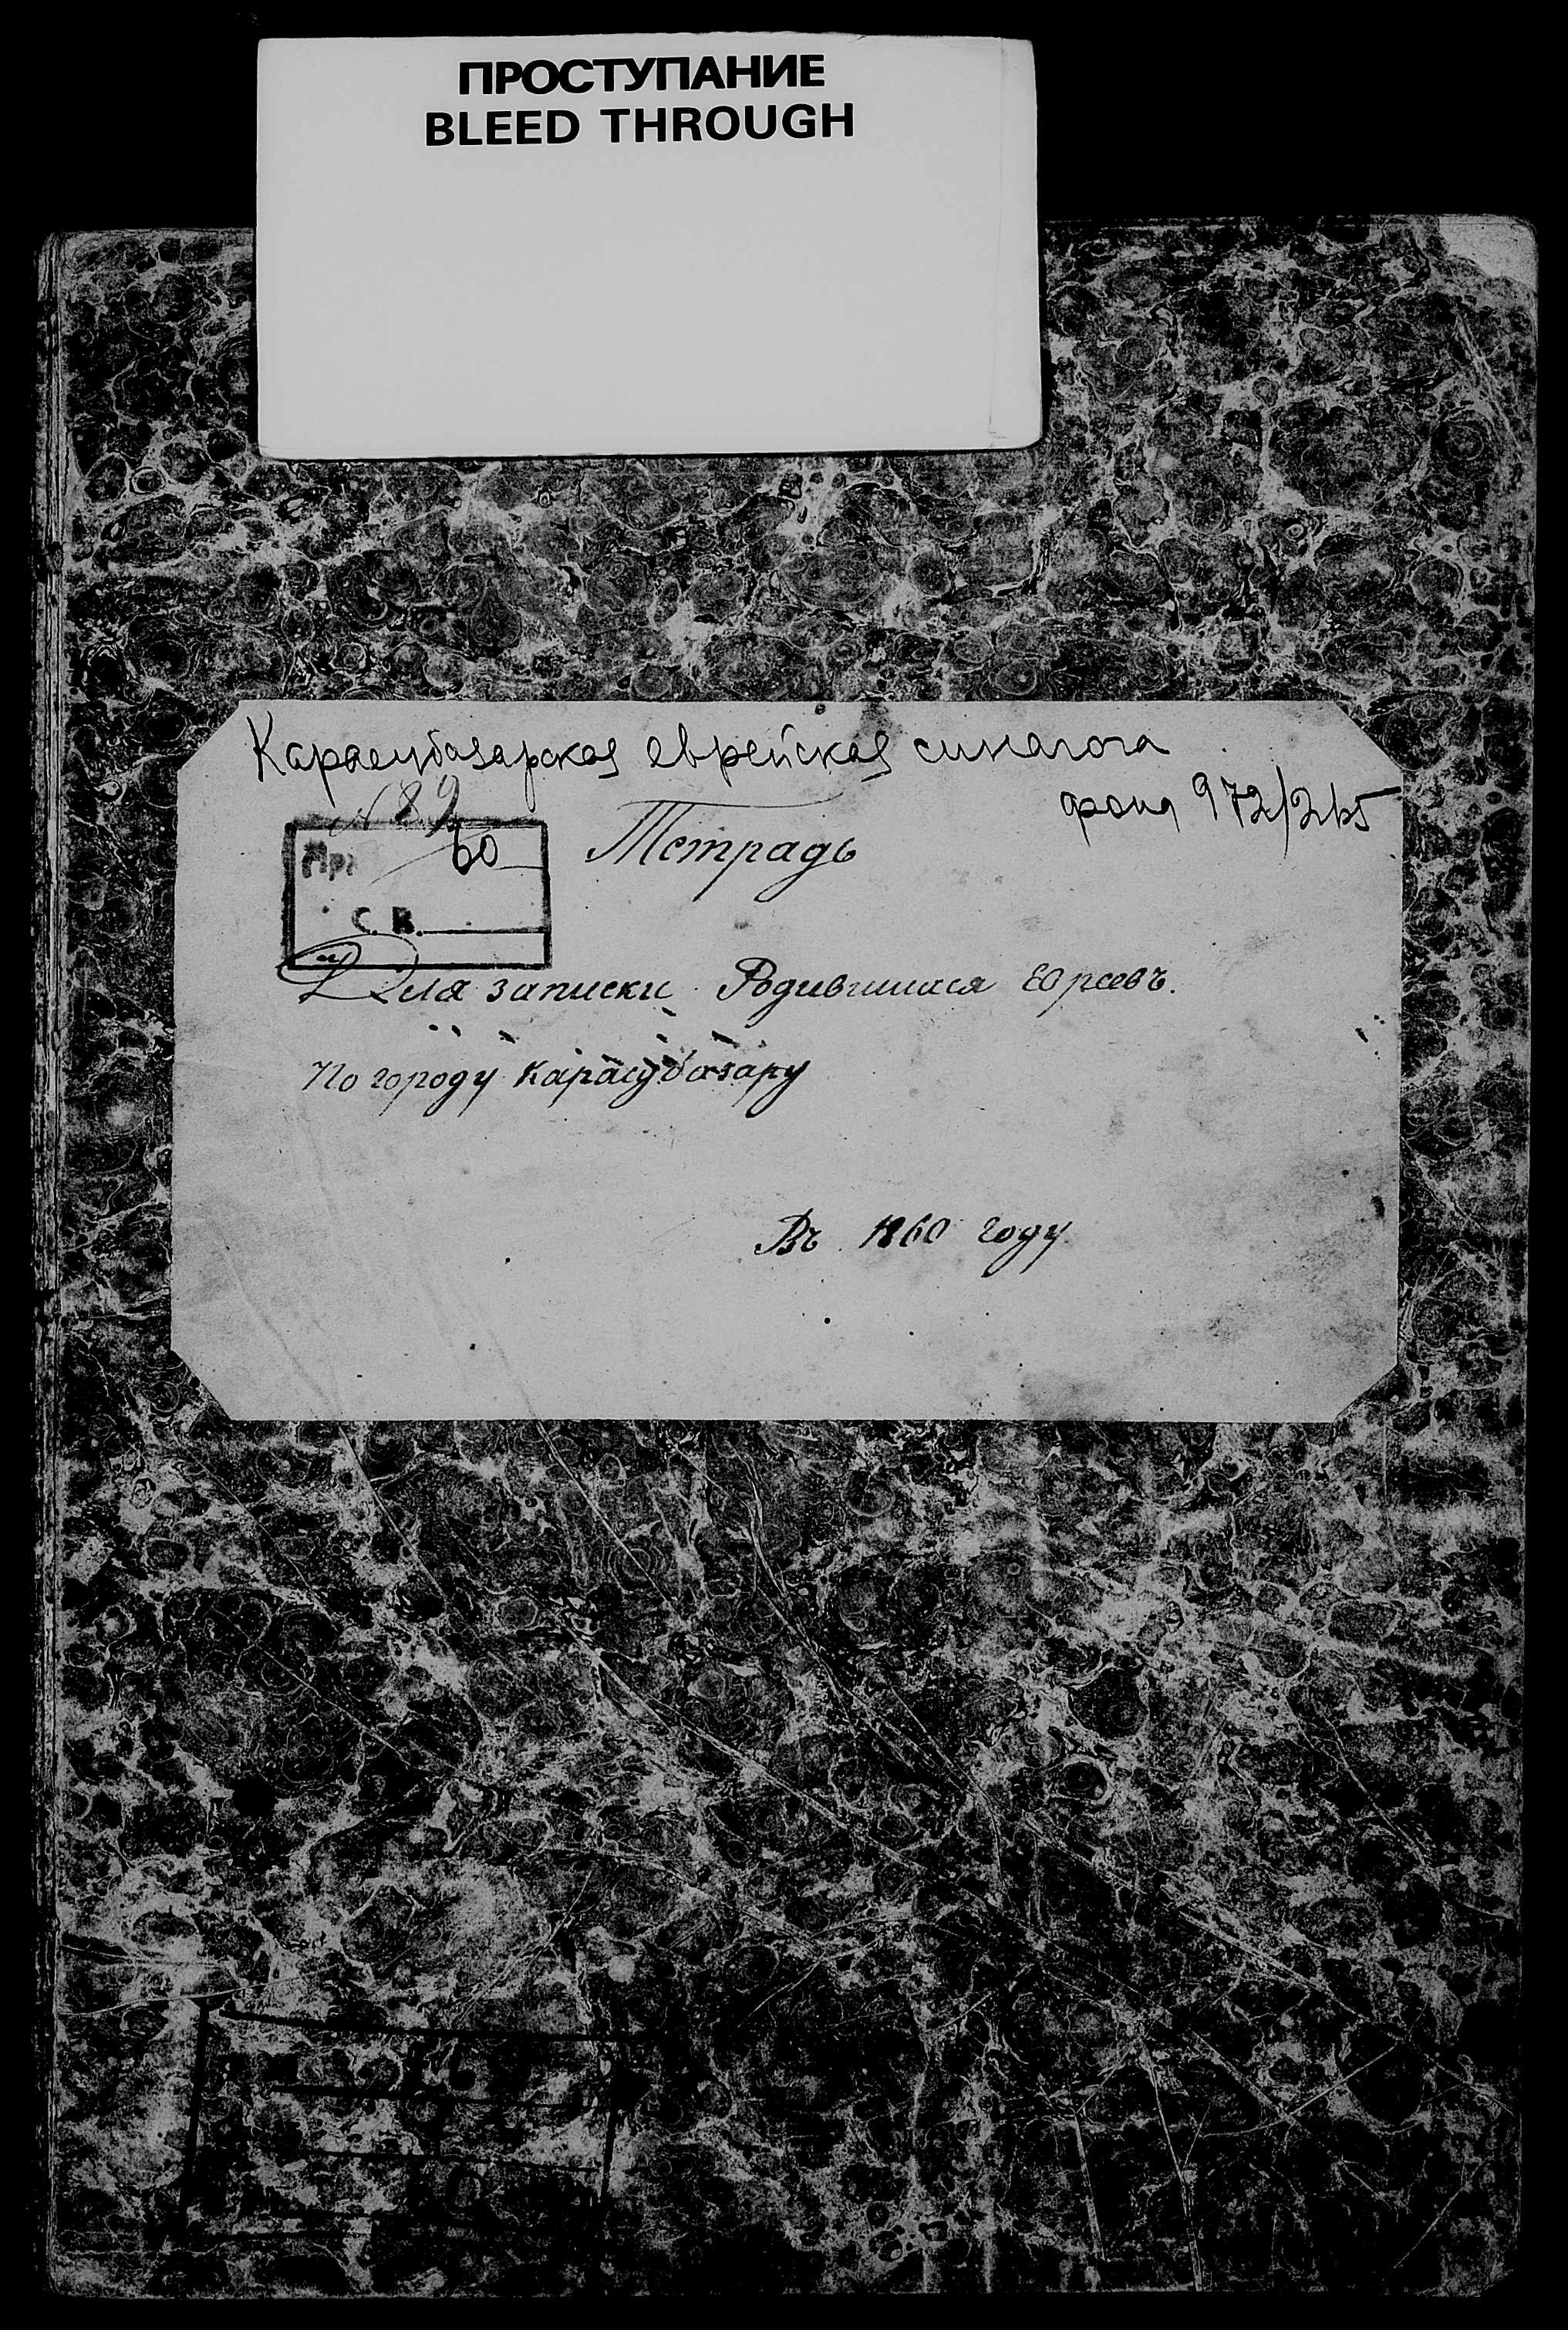 ПРОСТУПАНИЕ
BLEED THROUGH
Карасубазарская еврейская синагога
фонд 972/2b5
N 89
60
Тетрадь
С. В.
Для записки Родившихся Евреевъ.
По городу Карасубазару
Въ 1860 году